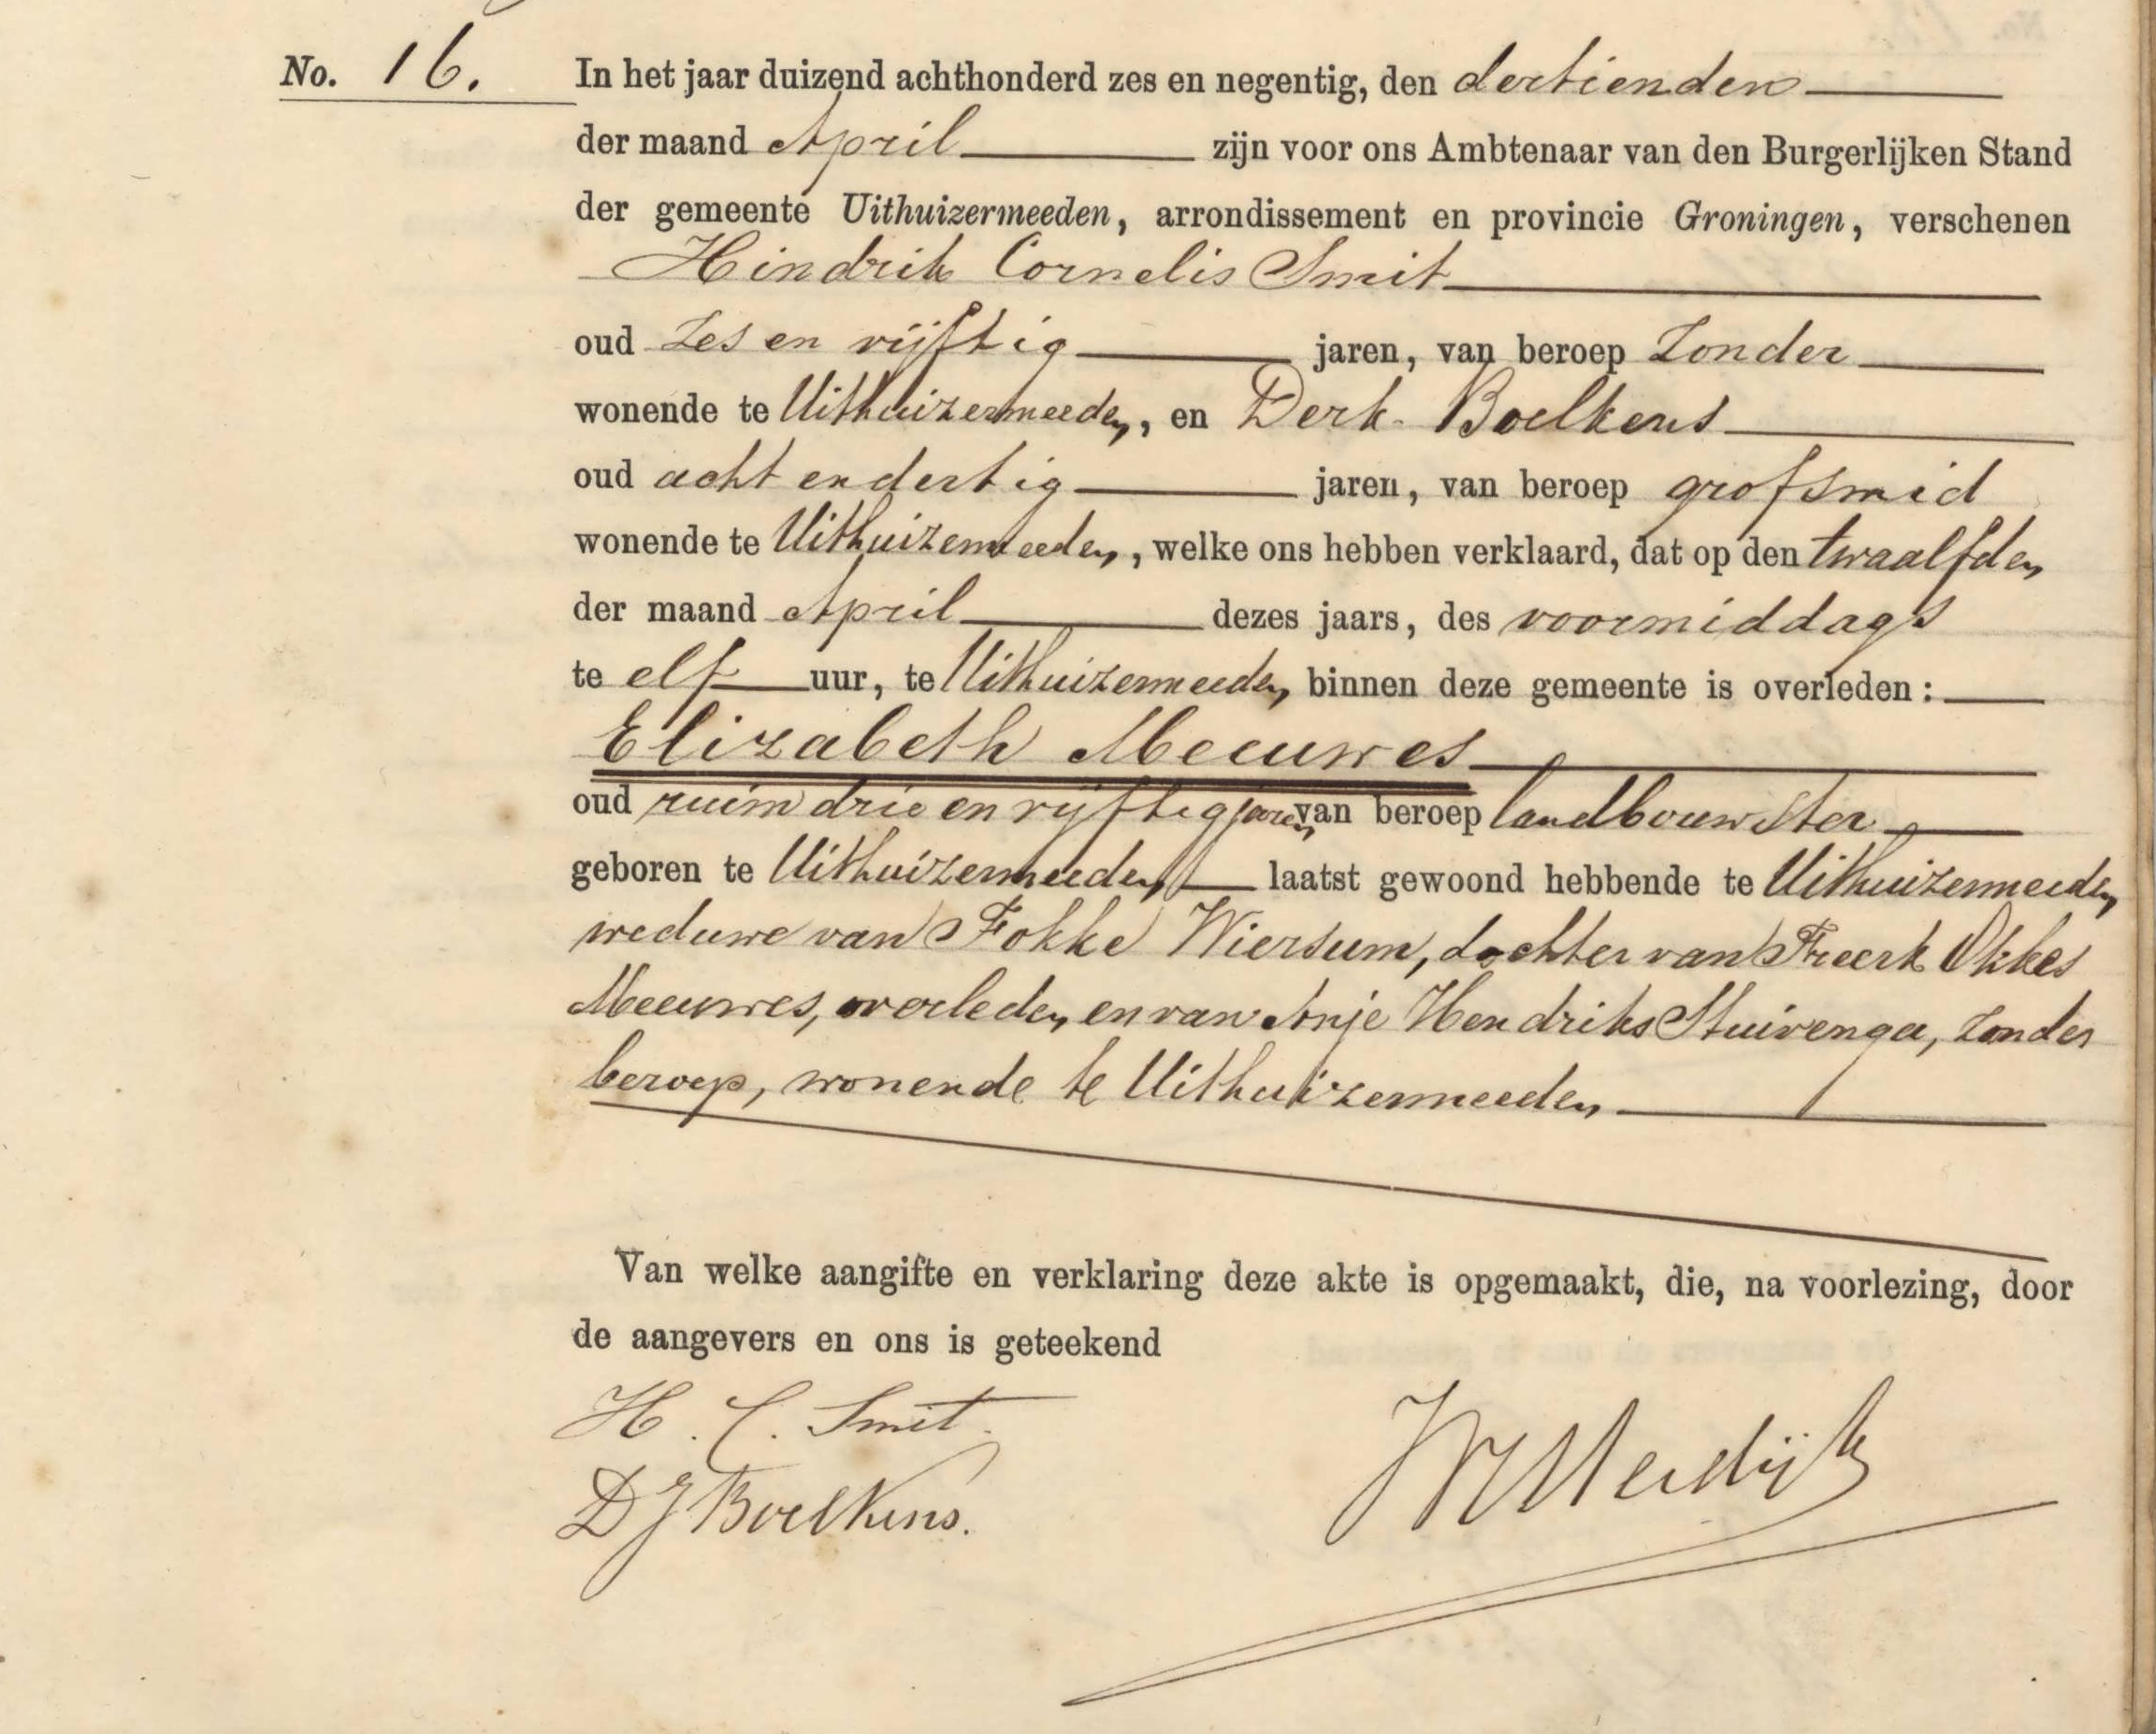 No. 16. In het jaar duizend achthonderd zes en negentig, den dertienden
der maand April zijn voor ons Ambtenaar van den Burgerlijken Stand
der gemeente Uithuizermeeden, arrondissement en provincie Groningen, verschenen
Hindrik Cornelis Smit
oud zes en vijftig jaren, van beroep zonder
wonende te Uithuizermeeden, en Derk Boelkens
oud acht en dertig jaren, van beroep grofsmid
wonende te Uithuizermeeden, welke ons hebben verklaard, dat op den twaalfden
der maand April dezes jaars, des voormiddags
te elf uur, te Uithuizermeeden, binnen deze gemeente is overleden:
Elizabeth Meeuwes
oud ruim drie en vijftig jaren van beroep landbouwster
geboren te Uithuizermeeden laatst gewoond hebbende te Uithuizermeeden
weduwe van Fokke Wiersum, dochter van Freerk Okkes
Meeuwes, overleden en van Anje Hendriks Stuivenga, zonder
beroep, wonende te Uithuizermeeden
Van welke aangifte en verklaring deze akte is opgemaakt, die, na voorlezing, door
de aangevers en ons is geteekend
H. C. Smit.
DJ Boelkens.